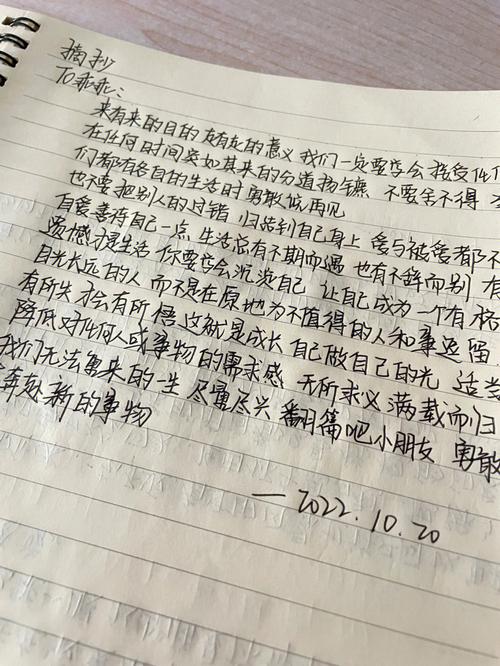 摘抄
To乖乖：
来有来的目的 走有走的意义 我们一定要学会 接受任何
在任何时间突如其来的分道扬镳 不要舍不得
们都有各自的生活时 勇敢做再见
也不要把别人的过错 归结到自己身上 爱与被爱都不
自爱善待自己一点 生活总有不期而遇 也有不辞而别 有
遗憾才是生活 你要学会沉淀自己 让自己成为一个有格
目光长远的人 而不是在原地为不值得的人和事逗留
有所失才会有所悟 这就是成长 自己做自己的光 适当
降低对任何人或事物的需求感 无所求必满载而归
我们无法重来的一生 尽量尽兴 翻篇吧小朋友 勇敢
奔赴新的事物
—2022.10.20